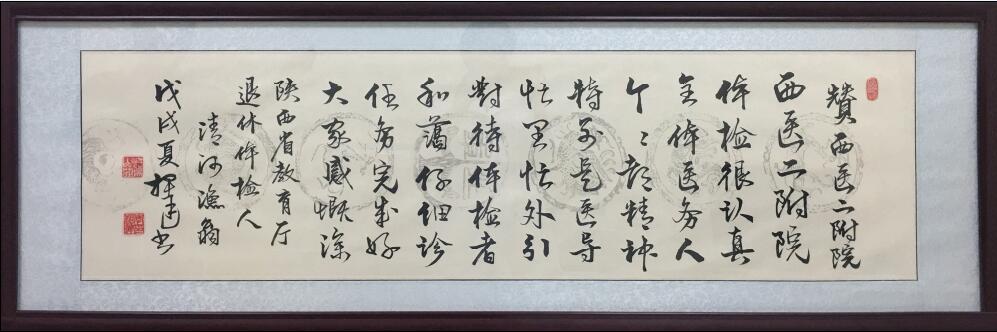 赞西医二附院
西医二附院
体检很认真
全体医务人
个个都精神
特别是医导
忙里忙外引
对待体检者
和蔼仔细诊
任务完成好
大家感慨深
陕西省教育厅
退休体检人
清河渔翁
戊戌夏